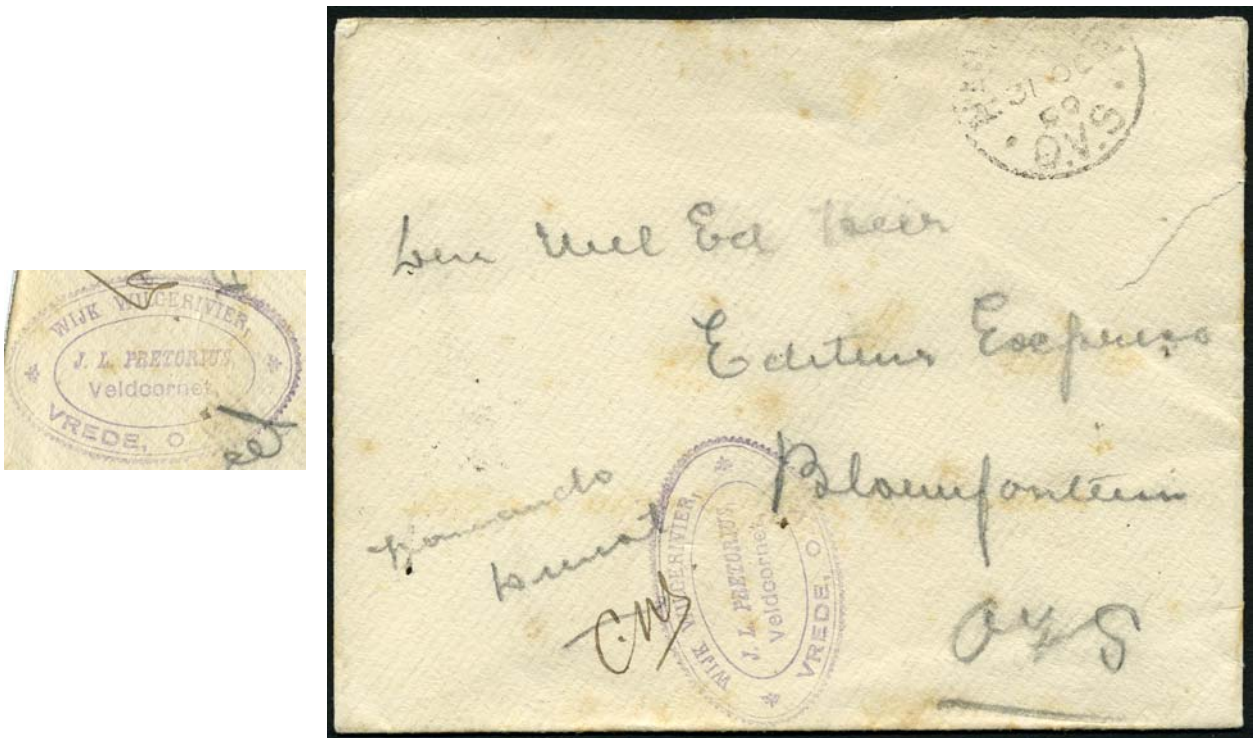 WIJK WILGERIVIER,
J. L. PRETORIUS,
Veldcornet,
VREDE, O
31 OC
99
O.V.S.
Den Wel Ed Heer
Editeur Express
Bloemfontein
Komando
Dienst
OVS
WIJK WILGERIVIER,
J. L. PRETORIUS,
Veldcornet,
VREDE, O